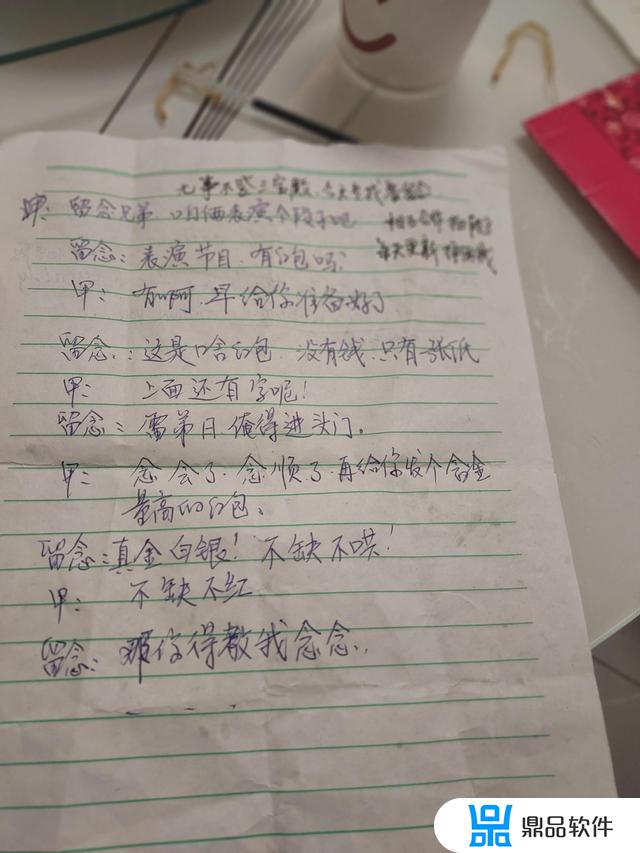 无事不登三宝殿.今天来找
甲: 留念兄弟.咱俩表演个段子吧
每天更新
留念: 表演节目.有红包吗?
甲: 有啊啊.早给你准备好了
留念: 这是啥红包.没有钱.只有一张纸
甲: 上面还有字呢!
留念: 雷弟日.俺得进头门.
甲: 念会了.念顺了.再给你发个含金
量高的红包.
留念: 真金白银! 不缺不哄!
甲: 不缺不红
留念: 那你得教我念念.
鼎品软件